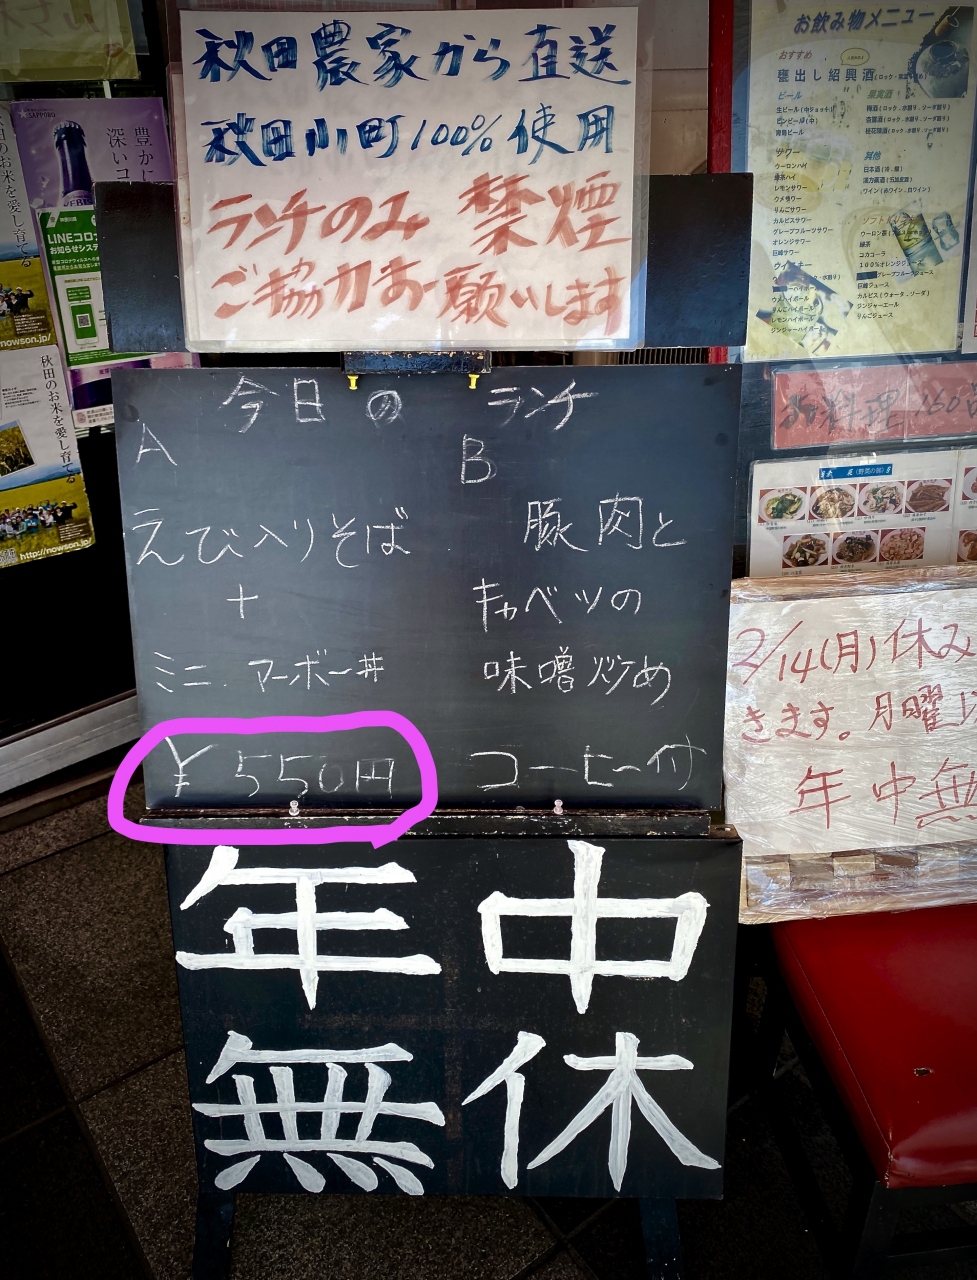 秋田農家から直送
秋田小町100%使用
ランチのみ 禁煙
ご協力お願いします
今日の ランチ
A
えび入りそば
+
ミニ マーボー丼
¥550円
B
豚肉と
キャベツの
味噌炒め
コーヒー付
年中
無休
お飲み物メニュー
おすすめ
甕出し紹興酒
ビール
生ビール(中ジョッキ)
サワー
ウーロンハイ
緑茶ハイ
レモンサワー
ウメ酒サワー
りんごサワー
カルピスサワー
グレープフルーツサワー
オレンジサワー
巨峰サワー
レモンハイボール
ジンジャーハイボール
果実酒
その他
日本酒(冷、燗)
ウーロン茶
緑茶
コカコーラ
100%オレンジジュース
グレープフルーツジュース
巨峰ジュース
カルピス(ウォータ、ソーダ)
ジンジャーエール
りんごジュース
料理 160
2/14(月)休み
きます。月曜
年中無
SAPPORO
豊かに
深いコ
LINEコロナ
お知らせシステ
秋田のお米を愛し育てる
http://nowson.jp